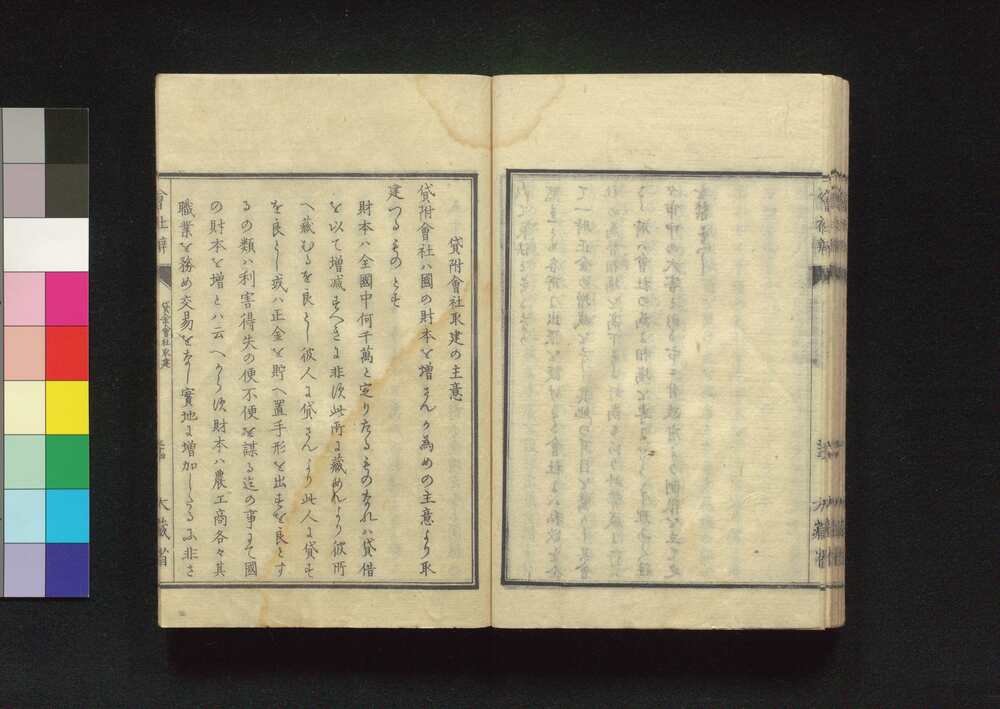 貸附會社取建の主意
貸附會社ハ國の財本を増さんか為めの主意より取
建つるものとす
財本ハ全國中何千萬と定りたるものなれハ貸借
を以て増减すへきに非す此所に藏めんより彼所
へ藏むるを良とし彼人に貸さんより此人に貸す
を良とし或ハ正金を貯へ置手形を出すを良とす
るの類ハ利害得失の便不便を謀る迄の事にて國
の財本を増とハ云へからす財本ハ農工商各々其
職業を務め交易をなし實地に増加したるに非さ
會社辨
貸附會社取建
大藏省
會社辨
大藏省